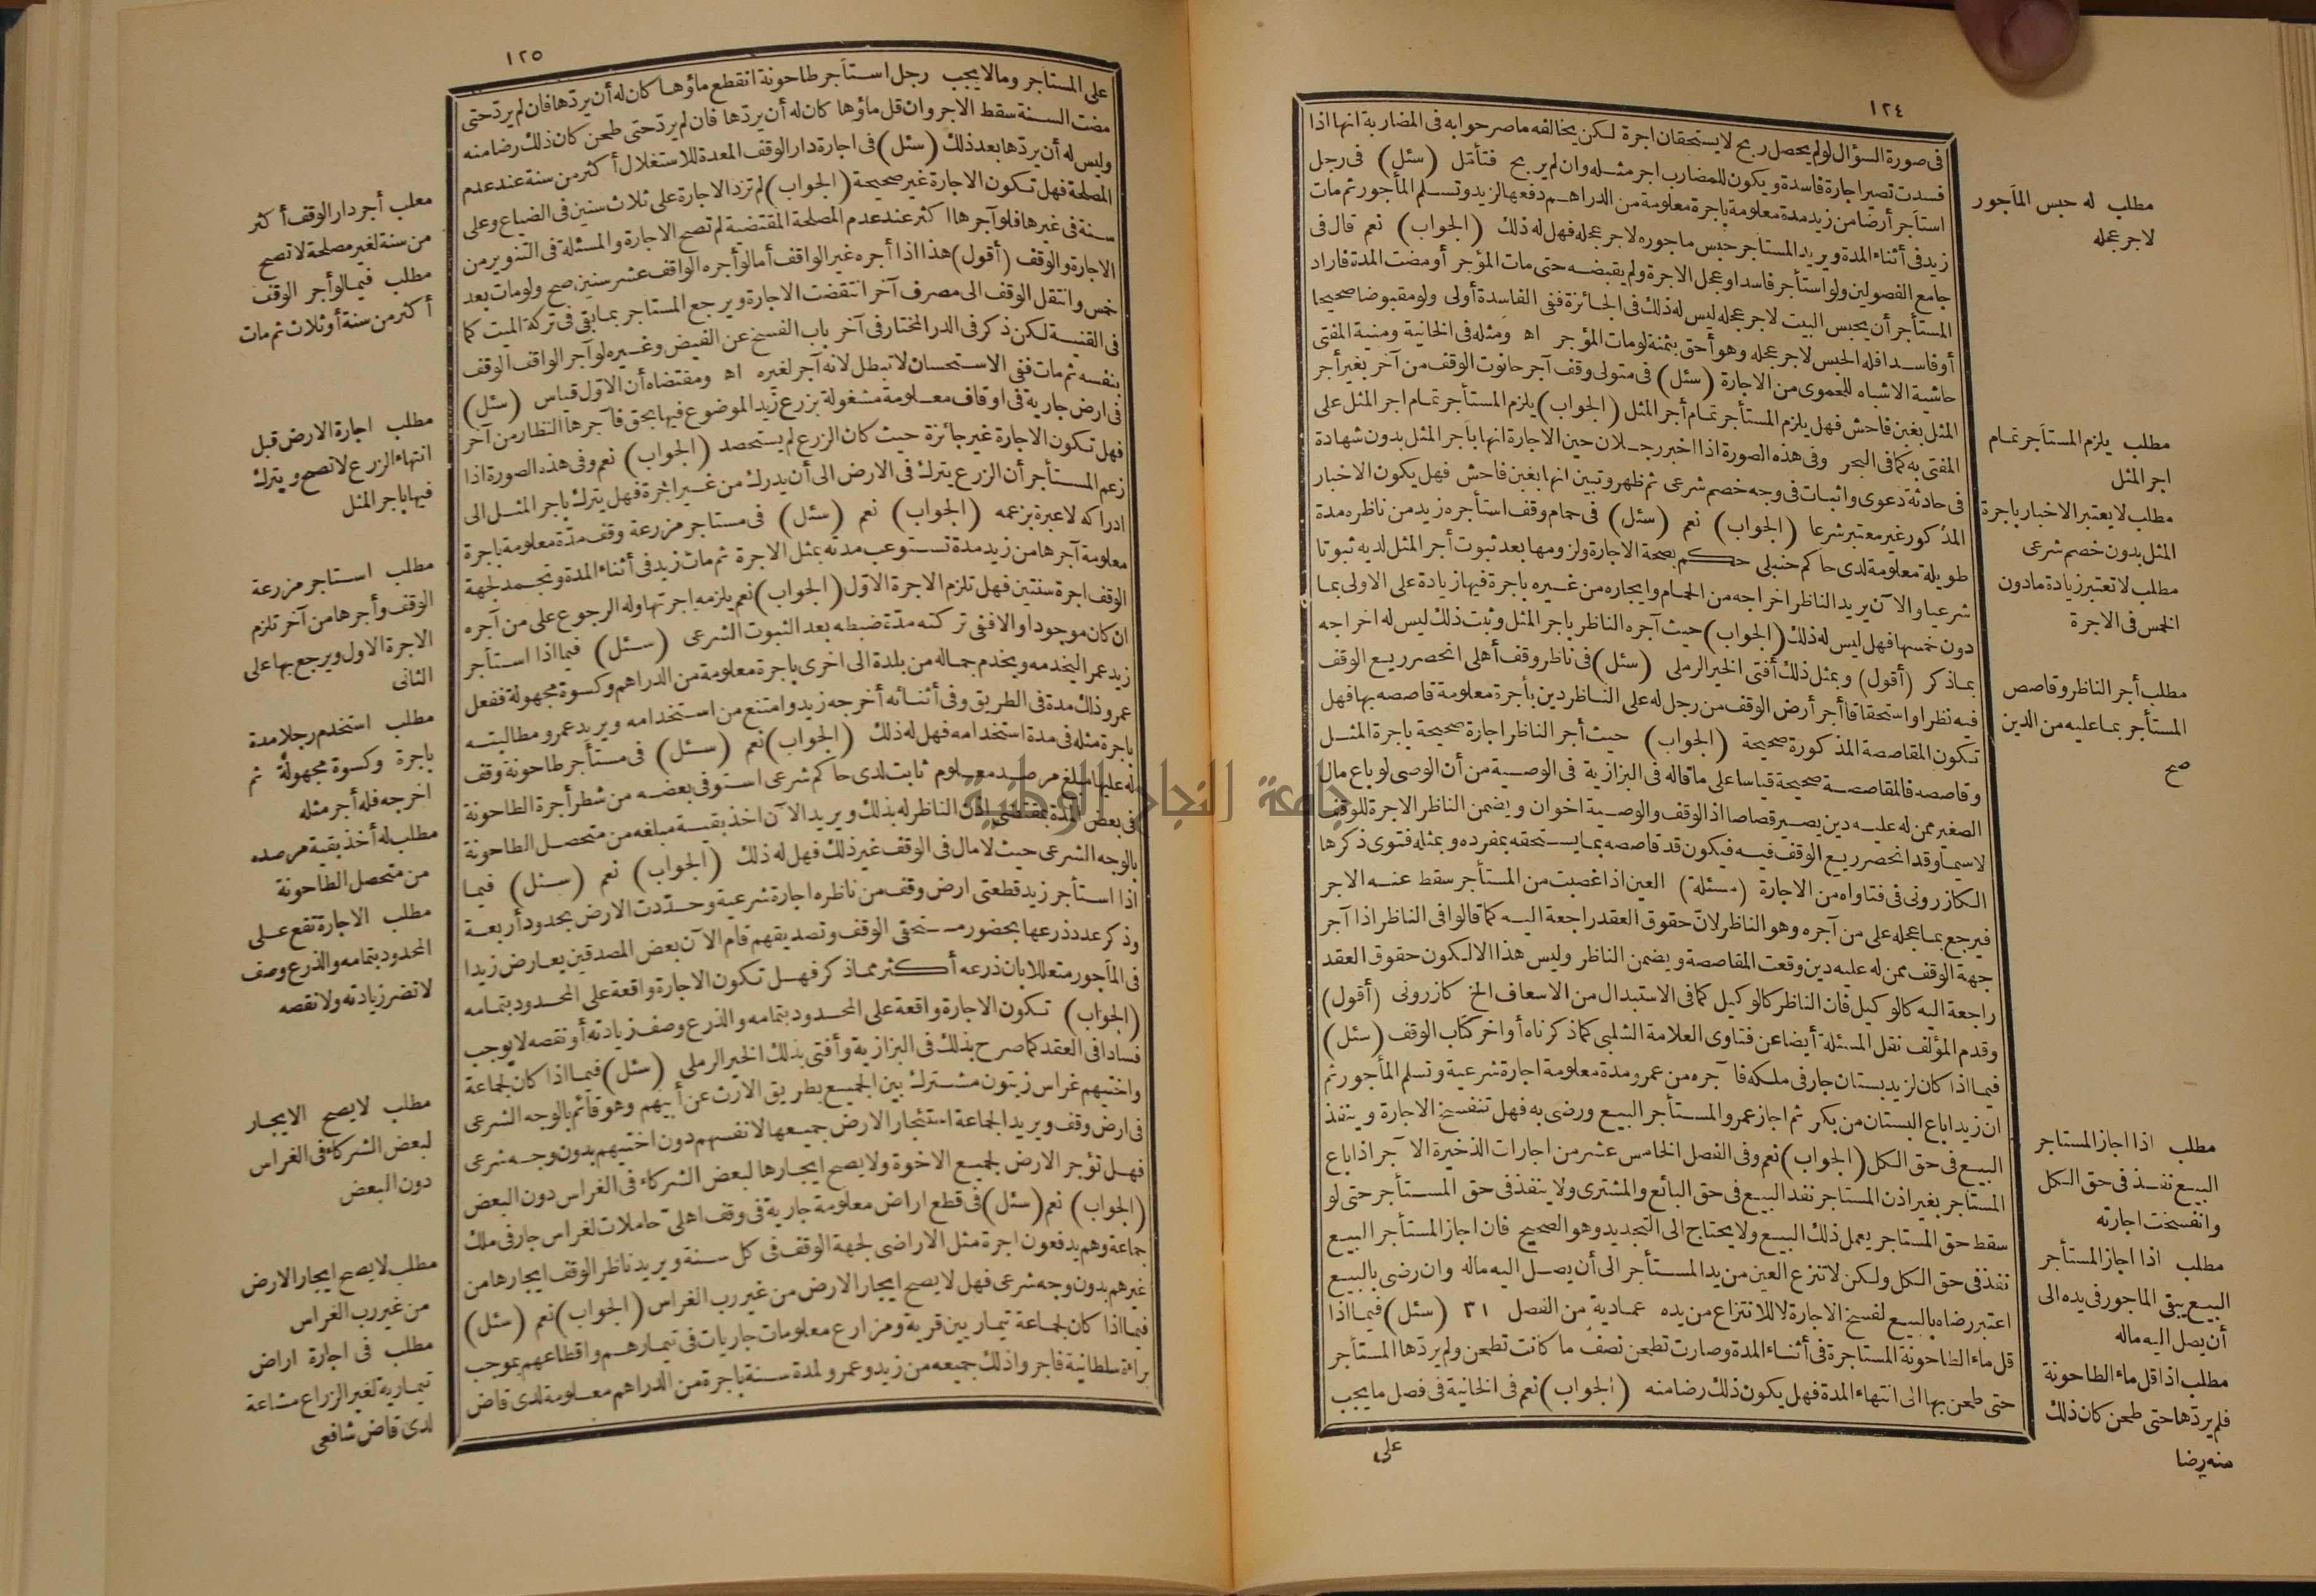 ١٢٤
فى صورة السؤال لو لم يحصل ربح لا يستحقان اجرة لكن يخالفه ما صرحوا به فى المضاربة انها اذا
فسدت تصير اجارة فاسدة ويكون للمضارب اجر مثله وان لم يربح فتأمل (سئل) فى رجل
استأجر أرضا من زيد مدة معلومة بأجرة معلومة من الدراهم دفعها لزيد وتسلم المأجور ثم مات
زيد فى أثناء المدة ويريد المستاجر حبس ماجوره لاجر عجله فهل له ذلك (الجواب) نعم قال فى
جامع الفصولين ولو استأجر فاسدا وعجل الاجرة ولم يقبضه حتى مات المؤجر أو مضت المدة فاراد
المستأجر أن يحبس البيت لاجر عجله ليس له ذلك فى الجائزة ففى الفاسدة أولى ولو مقبوضا صحيحا
أو فاسدا فله الحبس لاجر عجله وهو أحق بثمنه لو مات المؤجر اه ومثله فى الخانية ومنية المفتى
حاشية الاشباه للحموى من الاجارة (سئل) فى متولى وقف آجر حانوت الوقف من آخر بغير أجر
المثل بغبن فاحش فهل يلزم المستأجر تمام أجر المثل (الجواب) يلزم المستأجر تمام اجر المثل على
المفتى به كما فى البحر وفى هذه الصورة اذا اخبر رجلان حين الاجارة انها بأجر المثل بدون شهادة
فى حادثة دعوى واثبات فى وجه خصم شرعى ثم ظهر وتبين انها بغبن فاحش فهل يكون الاخبار
المذكور غير معتبر شرعا (الجواب) نعم (سئل) فى حمام وقف استأجره زيد من ناظره مدة
طويلة معلومة لدى حاكم حنبلى حكم بصحة الاجارة ولزومها بعد ثبوت أجر المثل لديه ثبوتا
شرعيا والآن يريد الناظر اخراجه من الحمام وايجاره من غيره باجرة فيها زيادة على الاولى بما
دون خمسها فهل ليس له ذلك (الجواب) حيث آجره الناظر باجر المثل وثبت ذلك ليس له اخراجه
بما ذكر (أقول) وبمثل ذلك أفتى الخير الرملى (سئل) فى ناظر وقف أهلى انحصر ريع الوقف
فيه نظرا واستحقاقا أجر أرض الوقف من رجل له على الناظر دين بأجرة معلومة قاصصه بها فهل
تكون المقاصصة المذكورة صحيحة (الجواب) حيث أجر الناظر اجارة صحيحة باجرة المثل
وقاصصه فالمقاصصة صحيحة قياسا على ما قاله فى البزازية فى الوصية من أن الوصى لو باع مال
الصغير ممن له عليه دين يصير قصاصا اذ الوقف والوصية اخوان ويضمن الناظر الاجرة للوقف
لاسيما وقد انحصر ريع الوقف فيه فيكون قد قاصصه بما يستحقه بمفرده وبمثله فتوى ذكرها
الكازرونى فى فتاواه من الاجارة (مسئلة) العين اذا غصبت من المستأجر سقط عنه الاجر
فيرجع بما عجله على من آجره وهو الناظر لان حقوق العقد راجعة اليه كما قالوا فى الناظر اذا آجر
جهة الوقف ممن له عليه دين وقعت المقاصصة ويضمن الناظر وليس هذا الا لكون حقوق العقد
راجعة اليه كالوكيل فان الناظر كالوكيل كما فى الاستبدال من الاسعاف الخ كازرونى (أقول)
وقدم المؤلف نقل المسئلة أيضا عن فتاوى العلامة الشلبى كما ذكرناه أواخر كتاب الوقف (سئل)
فيما اذا كان لزيد بستان جار فى ملكه فآجره من عمرو مدة معلومة اجارة شرعية وتسلم المأجور ثم
ان زيدا باع البستان من بكر ثم اجاز عمرو المستأجر البيع ورضى به فهل تنفسخ الاجارة وينفذ
البيع فى حق الكل (الجواب) نعم وفى الفصل الخامس عشر من اجارات الذخيرة الآجر اذا باع
المستاجر بغير اذن المستاجر نفذ البيع فى حق البائع والمشترى ولا ينفذ فى حق المستأجر حتى لو
سقط حق المستاجر يعمل ذلك البيع ولا يحتاج الى التجديد وهو الصحيح فان اجاز المستأجر البيع
نفذ فى حق الكل ولكن لا تنزع العين من يد المستأجر الى أن يصل اليه ماله وان رضى بالبيع
اعتبر رضاه بالبيع لفسخ الاجارة لا للانتزاع من يده عمادية من الفصل ٣١ (سئل) فيما اذا
قل ماء الطاحونة المستاجرة فى أثناء المدة وصارت تطحن نصف ما كانت تطحن ولم يردها المستأجر
حتى طحن بها الى انتهاء المدة فهل يكون ذلك رضا منه (الجواب) نعم فى الخانية فى فصل ما يجب
على
مطلب له حبس المأجور
لاجر عجله
مطلب يلزم المستأجر تمام
اجر المثل
مطلب لا يعتبر الاخبار باجرة
المثل بدون خصم شرعى
مطلب لا تعتبر زيادة ما دون
الخمس فى الاجرة
مطلب أجر الناظر وقاصص
المستأجر بما عليه من الدين
صح
مطلب اذا اجاز المستاجر
البيع نفذ فى حق الكل
وانفسخت اجارته
مطلب اذا اجاز المستأجر
البيع يبقى الماجور فى يده الى
أن يصل اليه ماله
مطلب اذا قل ماء الطاحونة
فلم يردها حتى طحن كان ذلك
منه رضا
١٢٥
على المستاجر وما لا يجب رجل استأجر طاحونة انقطع ماؤها كان له أن يردها فان لم يرد حتى
مضت السنة سقط الاجر وان قل ماؤها كان له أن يردها فان لم يرد حتى طحن كان ذلك رضا منه
وليس له أن يردها بعد ذلك (سئل) فى اجارة دار الوقف المعدة للاستغلال أكثر من سنة عند عدم
المصلحة فهل تكون الاجارة غير صحيحة (الجواب) لم تزد الاجارة على ثلاث سنين فى الضياع وعلى
سنة فى غيرها فلو آجرها اكثر عند عدم المصلحة المقتضية لم تصح الاجارة والمسئلة فى التنوير من
الاجارة والوقف (أقول) هذا اذا أجره غير الواقف أما لو أجره الواقف عشر سنين صح ولو مات بعد
خمس وانتقل الوقف الى مصرف آخر انتقضت الاجارة ويرجع المستاجر بما بقى فى تركة الميت كما
فى القنية لكن ذكر فى الدر المختار فى آخر باب الفسخ عن الفيض وغيره لو آجر الواقف الوقف
بنفسه ثم مات ففى الاستحسان لا تبطل لانه آجر لغيره اه ومقتضاه أن الاول قياس (سئل)
فى ارض جارية فى اوقاف معلومة مشغولة بزرع زيد الموضوع فيها بحق فآجرها النظار من آخر
فهل تكون الاجارة غير جائزة حيث كان الزرع لم يستحصد (الجواب) نعم وفى هذه الصورة اذا
زعم المستأجر أن الزرع يترك فى الارض الى أن يدرك من غير اجرة فهل يترك باجر المثل الى
ادراكه لا عبرة بزعمه (الجواب) نعم (سئل) فى مستاجر مزرعة وقف مدة معلومة باجرة
معلومة آجرها من زيد مدة تستوعب مدته بمثل الاجرة ثم مات زيد فى أثناء المدة وتجمد لجهة
الوقف اجرة سنتين فهل تلزم الاجرة الاول (الجواب) نعم يلزمه اجرتها وله الرجوع على من آجره
ان كان موجودا والا ففى تركته مدة ضبطه بعد الثبوت الشرعى (سئل) فيما اذا استأجر
زيد عمرا ليخدمه ويخدم جماله من بلدة الى اخرى باجرة معلومة من الدراهم وكسوة مجهولة ففعل
عمرو ذلك مدة فى الطريق وفى أثنائه أخرجه زيد وامتنع من استخدامه ويريد عمرو مطالبته
باجرة مثله فى مدة استخدامه فهل له ذلك (الجواب) نعم (سئل) فى مستأجر طاحونة وقف
له عليها مبلغ مرصد معلوم ثابت لدى حاكم شرعى استوفى بعضه من شطر أجرة الطاحونة
فى بعض المدة بمقتضى اذن الناظر له بذلك ويريد الآن اخذ بقية مبلغه من متحصل الطاحونة
بالوجه الشرعى حيث لا مال فى الوقف غير ذلك فهل له ذلك (الجواب) نعم (سئل) فيما
اذا استأجر زيد قطعتى ارض وقف من ناظره اجارة شرعية وحددت الارض بحدود أربعة
وذكر عدد ذرعها بحضور مستحقى الوقف وتصديقهم قام الآن بعض المصدقين يعارض زيدا
فى المأجور متعللا بان ذرعه أكثر مما ذكر فهل تكون الاجارة واقعة على المحدود بتمامه
(الجواب) تكون الاجارة واقعة على المحدود بتمامه والذرع وصف زيادته أو نقصه لا يوجب
فسادا فى العقد كما صرح بذلك فى البزازية وأفتى بذلك الخير الرملى (سئل) فيما اذا كان لجماعة
واختيهم غراس زيتون مشترك بين الجميع بطريق الارث عن أبيهم وهو قائم بالوجه الشرعى
فى ارض وقف ويريد الجماعة استئجار الارض جميعها لانفسهم دون اختيهم بدون وجه شرعى
فهل تؤجر الارض لجميع الاخوة ولا يصح ايجارها لبعض الشركاء فى الغراس دون البعض
(الجواب) نعم (سئل) فى قطع اراض معلومة جارية فى وقف اهلى حاملات لغراس جار فى ملك
جماعة وهم يدفعون اجرة مثل الاراضى لجهة الوقف فى كل سنة ويريد ناظر الوقف ايجارها من
غيرهم بدون وجه شرعى فهل لا يصح ايجار الارض من غير رب الغراس (الجواب) نعم (سئل)
فيما اذا كان لجماعة تيمار بين قرية ومزارع معلومات جاريات فى تيمارهم واقطاعهم بموجب
براءة سلطانية فاجروا ذلك جميعه من زيد وعمرو لمدة سنة باجرة من الدراهم معلومة لدى قاض
مطلب أجر دار الوقف أكثر
من سنة لغير مصلحة لا تصح
مطلب فيما لو أجر الوقف
أكثر من سنة أو ثلاث ثم مات
مطلب اجارة الارض قبل
انتهاء الزرع لا تصح ويترك
فيها باجر المثل
مطلب استاجر مزرعة
الوقف وأجرها من آخر تلزم
الاجرة الاول ويرجع بها على
الثانى
مطلب استخدم رجلا مدة
باجرة وكسوة مجهولة ثم
اخرجه فله أجر مثله
مطلب له أخذ بقية مرصده
من متحصل الطاحونة
مطلب الاجارة تقع على
المحدود بتمامه والذرع وصف
لا تضر زيادته ولا نقصه
مطلب لا يصح الايجار
لبعض الشركاء فى الغراس
دون البعض
مطلب لا يصح ايجار الارض
من غير رب الغراس
مطلب فى اجارة اراض
تيمارية لغير الزراع مشاعة
لدى قاض شافعى
جامعة النجاح الوطنية